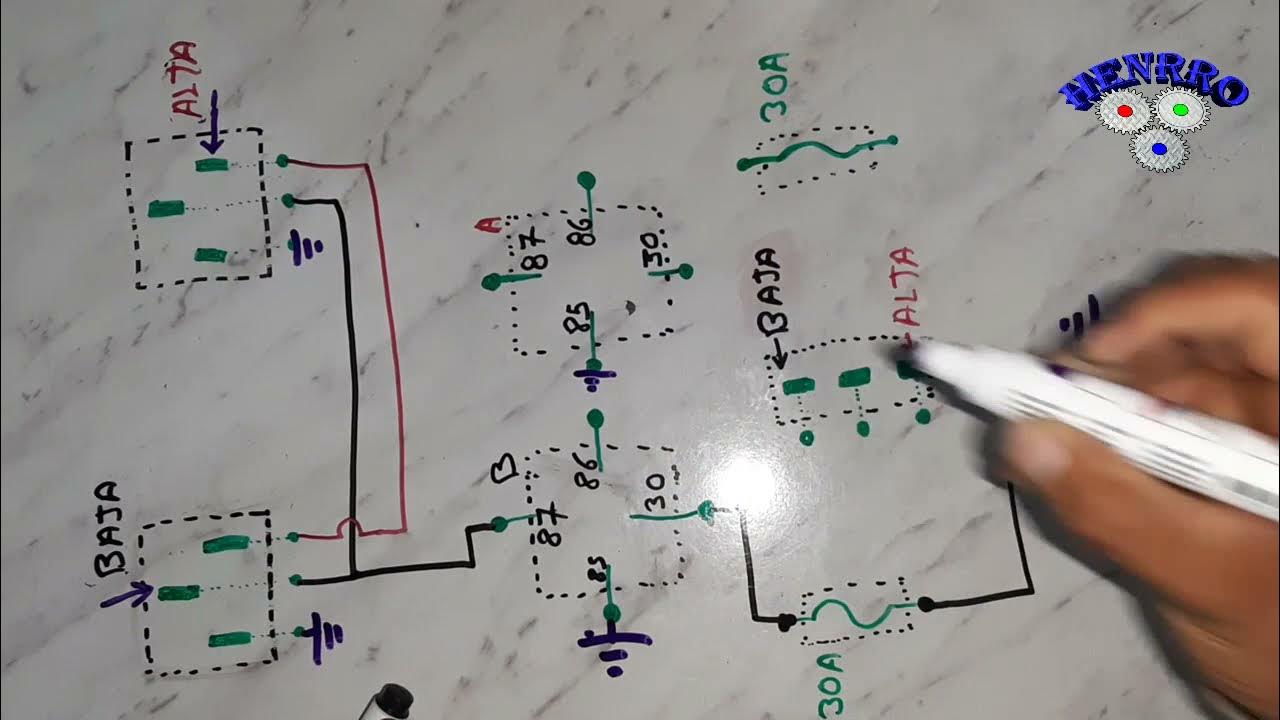 HENRRO
ALTA
30A
A
87
86
30
85
BAJA
ALTA
BAJA
B
87
86
30
85
30A